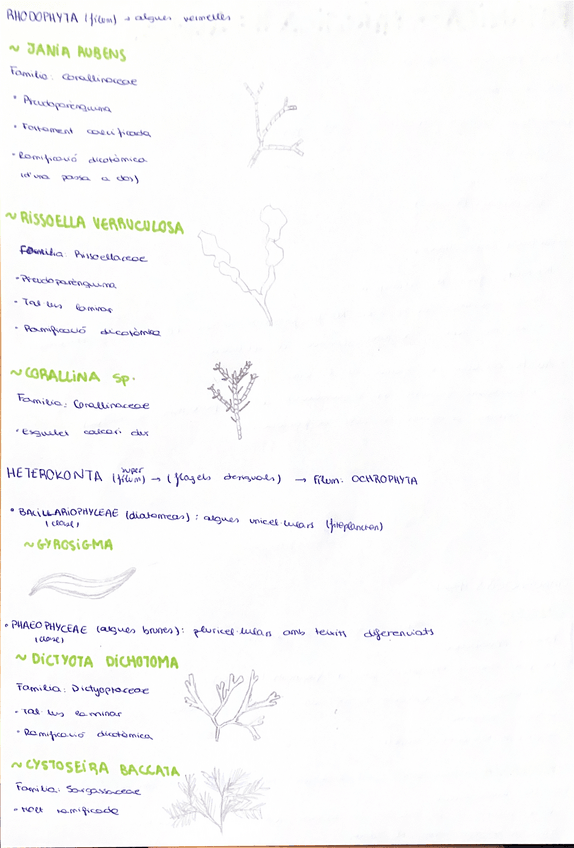 RHODOPHYTA (fílum) → algues vermelles
~ JANIA RUBENS
Família: Corallinaceae
• Pseudoparènquima
• Fortament calcificada
• Ramificació dicotòmica
(d'una passa a dos)
~ RISSOELLA VERRUCULOSA
Família: Rissoellaceae
• Pseudoparènquima
• Tal·lus laminar
• Ramificació dicotòmica
~ CORALLINA Sp.
Família: Corallinaceae
• Esquelet calcari dur
HETEROKONTA (super fílum) → (flagels desiguals) → Fílum: OCHROPHYTA
• BACILLARIOPHYCEAE (diatomeas): algues unicel·lulars (fitoplancton)
(classe)
~ GYROSIGMA
• PHAEOPHYCEAE (algues brunes): pluricel·lulars amb teixits diferenciats
(classe)
~ DICTYOTA DICHOTOMA
Família: Dictyotaceae
• Tal·lus laminar
• Ramificació dicotòmica
~ CYSTOSEIRA BACCATA
Família: Sargassaceae
• Molt ramificada